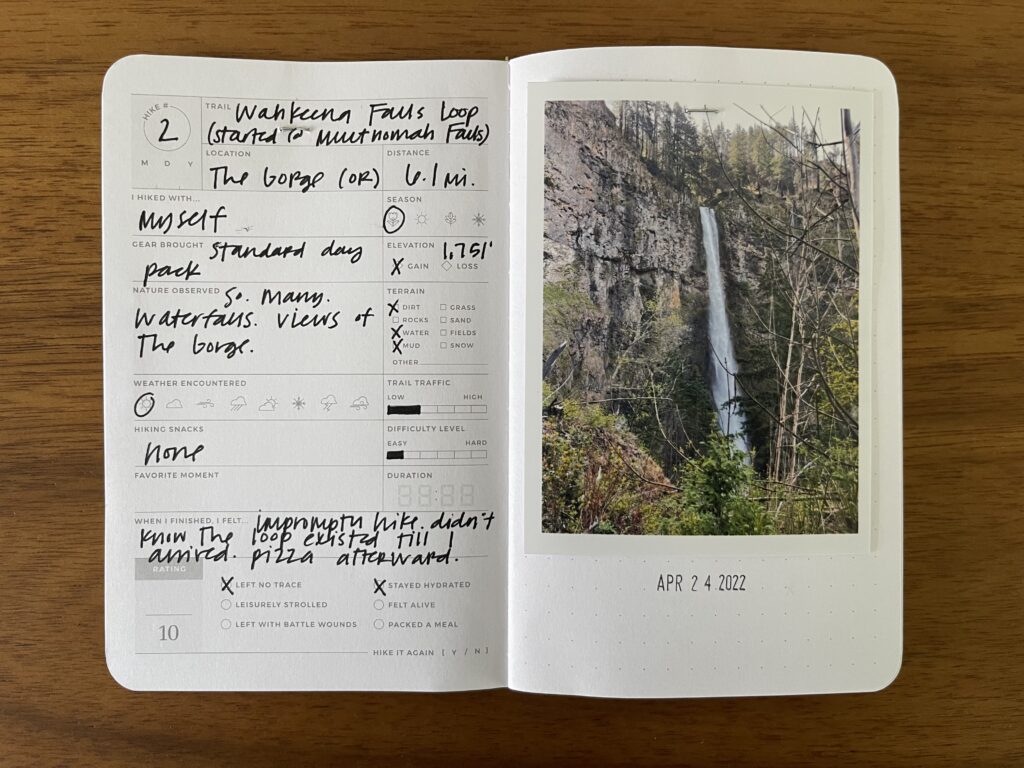 HIKE #
2
M D Y
TRAIL Wahkeena Falls Loop
(started @ Multnomah Falls)
LOCATION
The Gorge (OR)
DISTANCE
6.1 mi.
I HIKED WITH...
Myself
SEASON
GEAR BROUGHT standard day
pack
ELEVATION 1,751'
X GAIN LOSS
NATURE OBSERVED So. Many.
Waterfalls. Views of
The Gorge.
TERRAIN
X DIRT GRASS
ROCKS SAND
X WATER FIELDS
X MUD SNOW
OTHER
WEATHER ENCOUNTERED
TRAIL TRAFFIC
LOW HIGH
HIKING SNACKS
none
DIFFICULTY LEVEL
EASY HARD
FAVORITE MOMENT
DURATION
88:88
WHEN I FINISHED, I FELT... impromptu hike. didn't
know the loop existed till I
arrived. pizza afterward.
RATING
10
X LEFT NO TRACE X STAYED HYDRATED
LEISURELY STROLLED FELT ALIVE
LEFT WITH BATTLE WOUNDS PACKED A MEAL
HIKE IT AGAIN [ Y / N ]
APR 24 2022